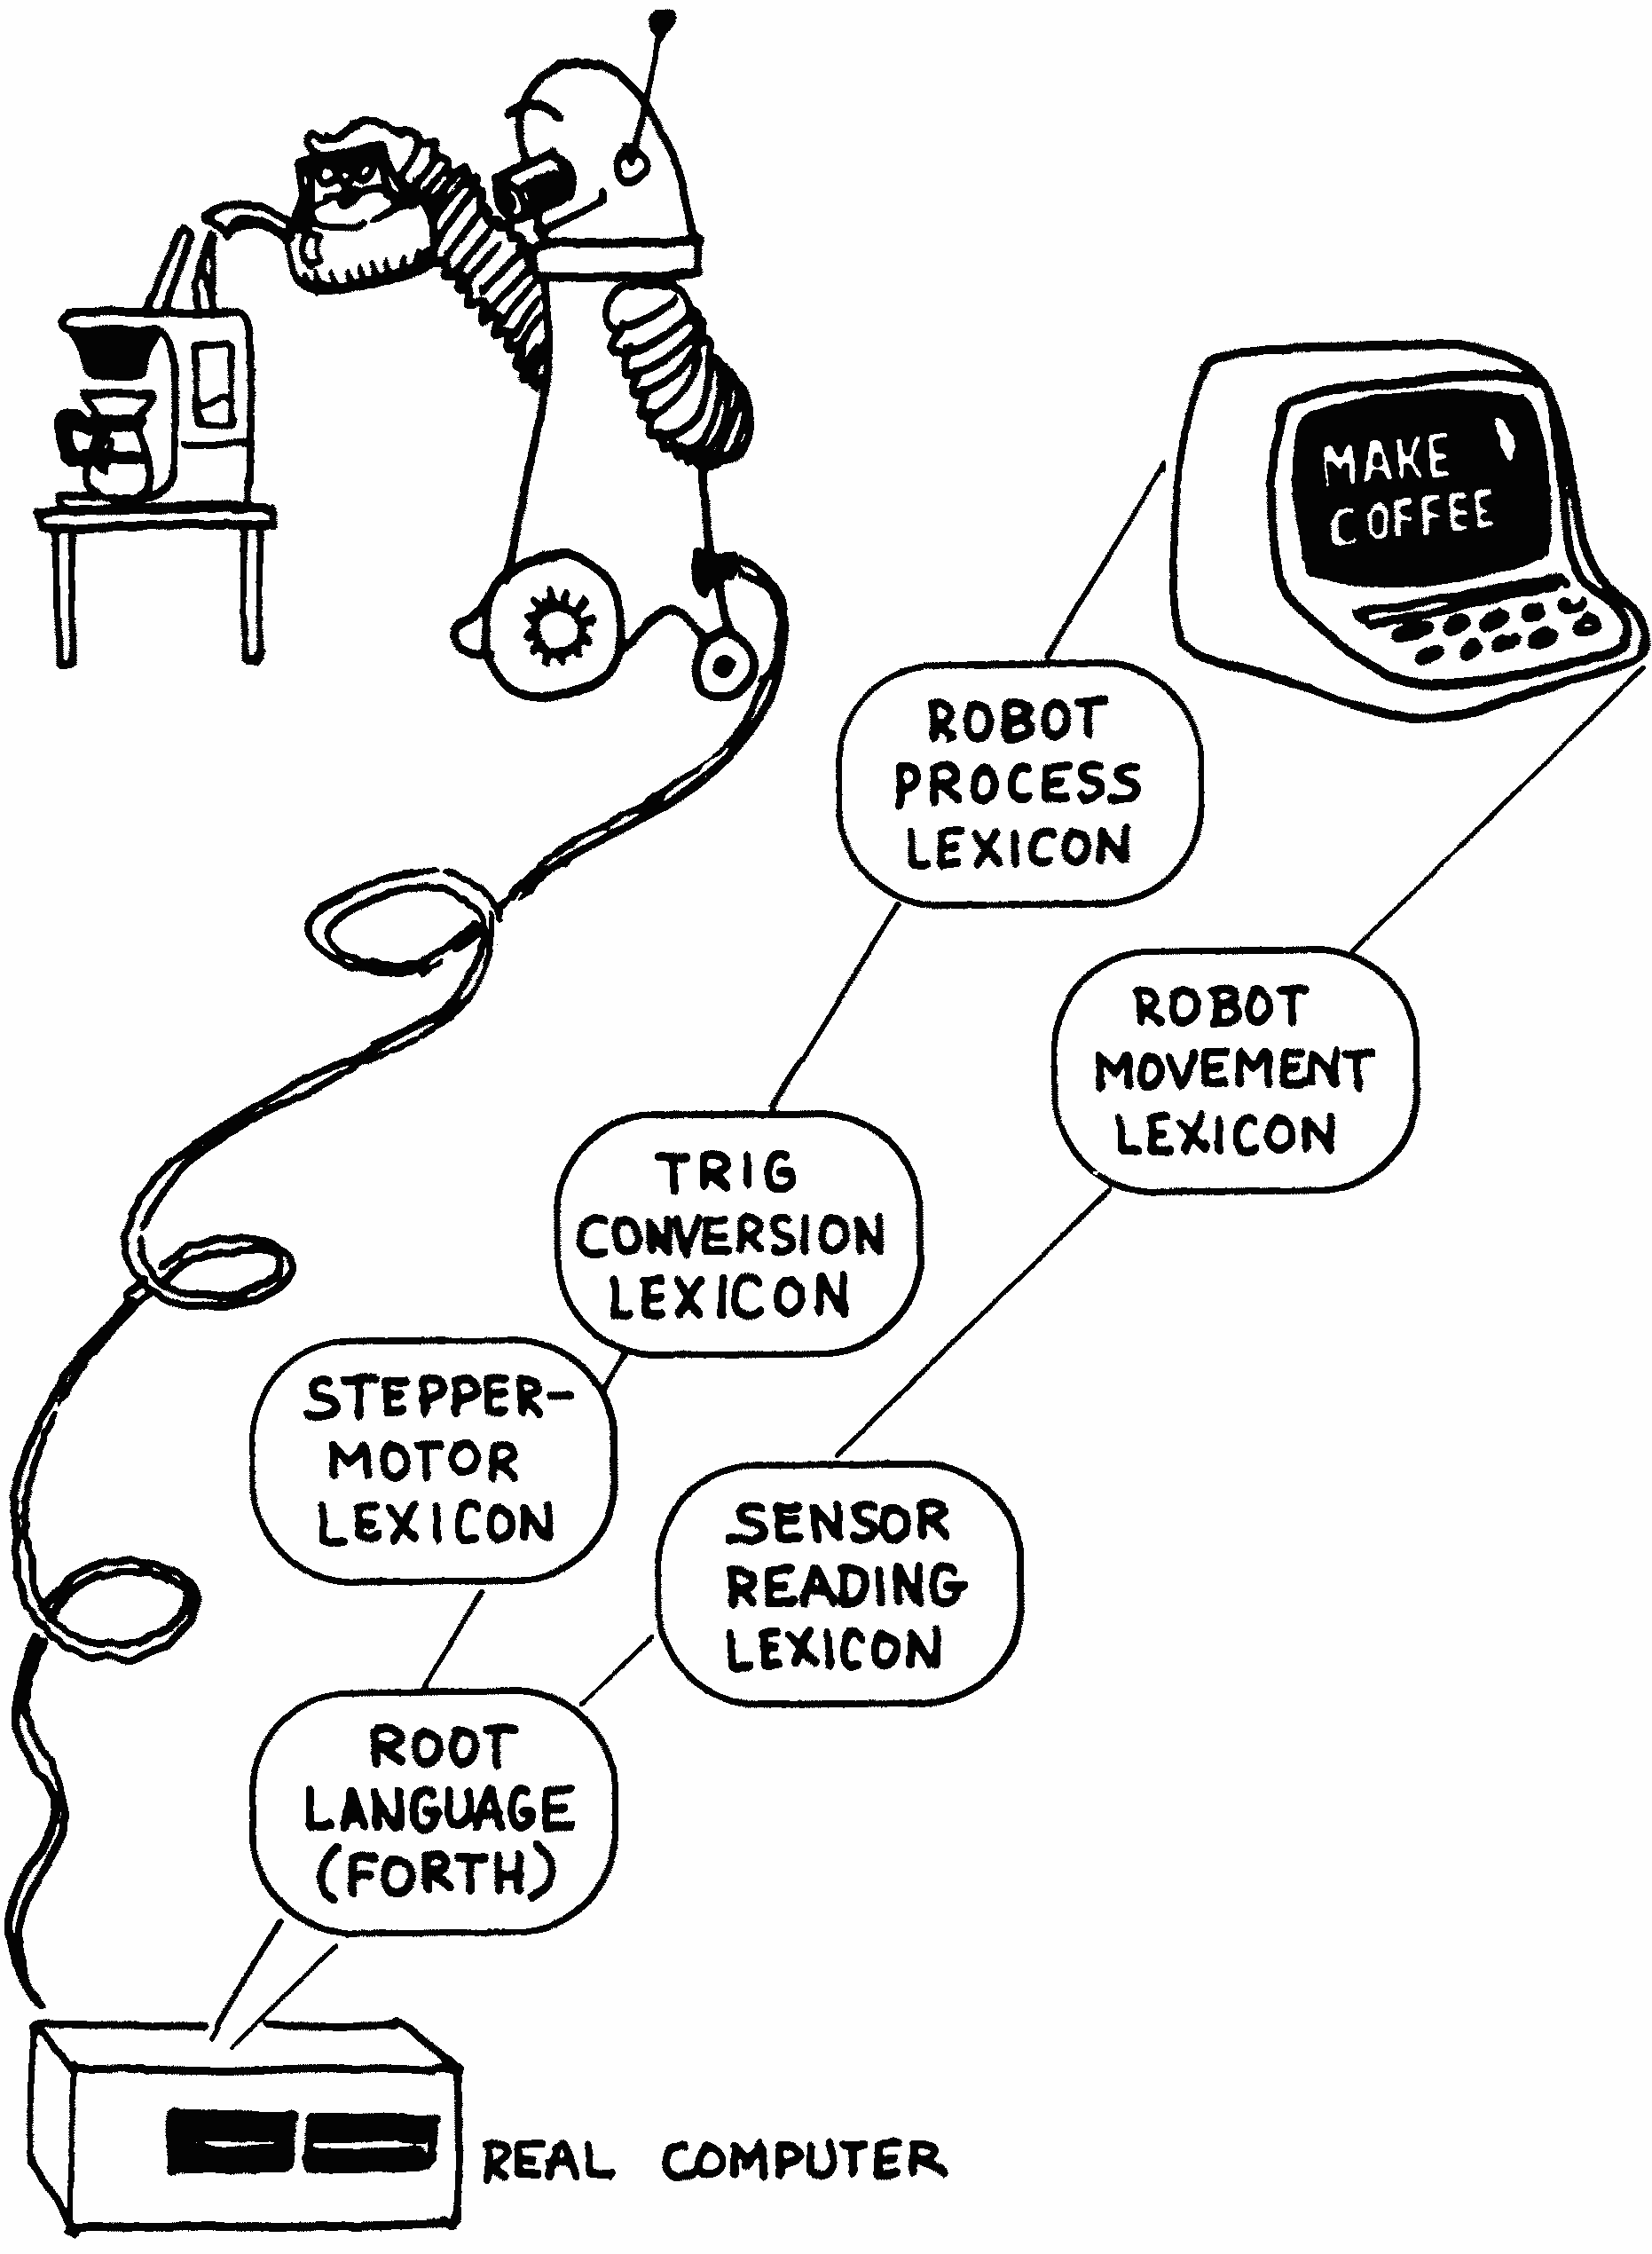 MAKE
COFFEE
ROBOT
PROCESS
LEXICON
ROBOT
MOVEMENT
LEXICON
TRIG
CONVERSION
LEXICON
STEPPER-
MOTOR
LEXICON
SENSOR
READING
LEXICON
ROOT
LANGUAGE
(FORTH)
REAL COMPUTER